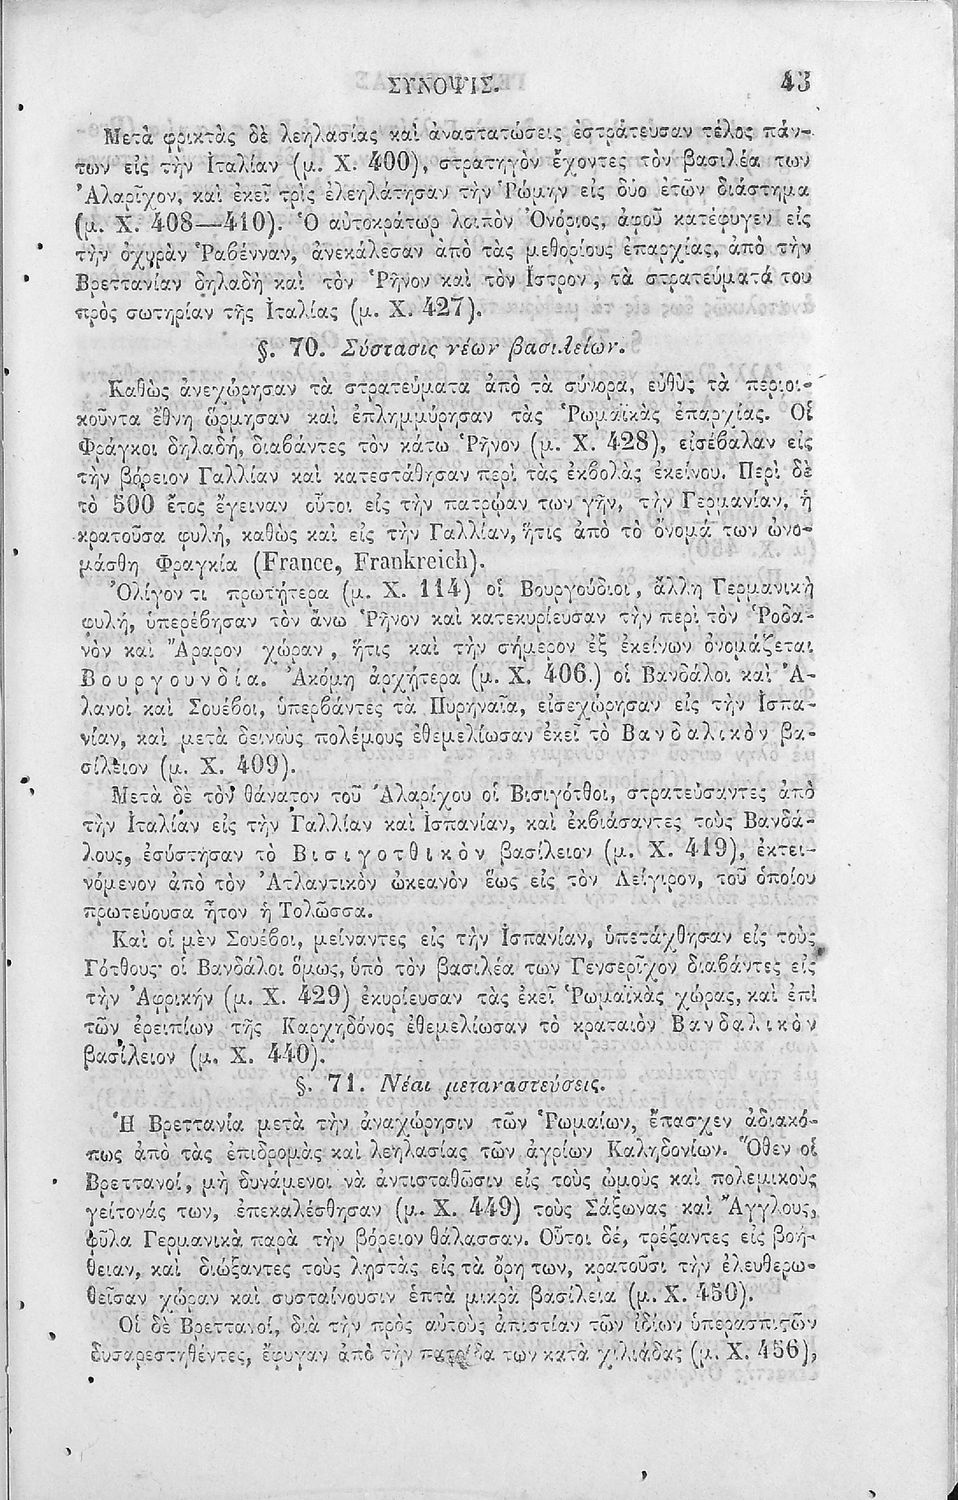 ΣΥΝΟΨΙΣ. 43
Μετὰ φρικτὰς δὲ λεηλασίας καὶ ἀναστατώσεις ἐστράτευσαν τέλος πάν-
των εἰς τὴν Ἰταλίαν (μ. Χ. 400), στρατηγὸν ἔχοντες τὸν βασιλέα των
Ἀλαρῖχον, καὶ ἐκεῖ τρὶς ἐλεηλάτησαν τὴν Ῥώμην εἰς δύο ἐτῶν διάστημα
(μ. Χ. 408—410). Ὁ αὐτοκράτωρ λοιπὸν Ὀνόριος, ἀφοῦ κατέφυγεν εἰς
τὴν ὀχυρὰν Ῥαβένναν, ἀνεκάλεσαν ἀπὸ τὰς μεθορίους ἐπαρχίας, ἀπὸ τὴν
Βρεττανίαν δηλαδὴ καὶ τὸν Ῥῆνον καὶ τὸν Ἴστρον, τὰ στρατεύματά του
πρὸς σωτηρίαν τῆς Ἰταλίας (μ. Χ. 427).
§. 70. Σύστασις νέων βασιλείων.
Καθὼς ἀνεχώρησαν τὰ στρατεύματα ἀπὸ τὰ σύνορα, εὐθὺς τὰ περιοι-
κοῦντα ἔθνη ὥρμησαν καὶ ἐπλημμύρησαν τὰς Ῥωμαϊκὰς ἐπαρχίας. Οἱ
Φράγκοι δηλαδή, διαβάντες τὸν κάτω Ῥῆνον (μ. Χ. 428), εἰσέβαλαν εἰς
τὴν βόρειον Γαλλίαν καὶ κατεστάθησαν περὶ τὰς ἐκβολὰς ἐκείνου. Περὶ δὲ
τὸ 500 ἔτος ἔγειναν οὗτοι εἰς τὴν πατρῴαν των γῆν, τὴν Γερμανίαν, ἡ
κρατοῦσα φυλή, καθὼς καὶ εἰς τὴν Γαλλίαν, ἥτις ἀπὸ τὸ ὄνομά των ὠνο-
μάσθη Φραγκία (France, Frankreich).
Ὀλίγον τι πρωτήτερα (μ. Χ. 114) οἱ Βουργούδιοι, ἄλλη Γερμανικὴ
φυλή, ὑπερέβησαν τὸν ἄνω Ῥῆνον καὶ κατεκυρίευσαν τὴν περὶ τὸν Ῥοδα-
νὸν καὶ Ἄραρον χώραν, ἥτις καὶ τὴν σήμερον ἐξ ἐκείνων ὀνομάζεται
Βουργουνδία. Ἀκόμη ἀρχήτερα (μ. Χ. 406.) οἱ Βανδάλοι καὶ Ἀ-
λανοὶ καὶ Σουέβοι, ὑπερβάντες τὰ Πυρηναῖα, εἰσεχώρησαν εἰς τὴν Ἰσπα-
νίαν, καὶ μετὰ δεινοὺς πολέμους ἐθεμελίωσαν ἐκεῖ τὸ Βανδαλικὸν βα-
σίλειον (μ. Χ. 409).
Μετὰ δὲ τὸν θάνατον τοῦ Ἀλαρίχου οἱ Βισιγότθοι, στρατεύσαντες ἀπὸ
τὴν Ἰταλίαν εἰς τὴν Γαλλίαν καὶ Ἰσπανίαν, καὶ ἐκβιάσαντες τοὺς Βανδά-
λους, ἐσύστησαν τὸ Βισιγοτθικὸν βασίλειον (μ. Χ. 419), ἐκτει-
νόμενον ἀπὸ τὸν Ἀτλαντικὸν ὠκεανὸν ἕως εἰς τὸν Λείγιρον, τοῦ ὁποίου
πρωτεύουσα ἦτον ἡ Τολῶσσα.
Καὶ οἱ μὲν Σουέβοι, μείναντες εἰς τὴν Ἰσπανίαν, ὑπετάχθησαν εἰς τοὺς
Γότθους· οἱ Βανδάλοι ὅμως, ὑπὸ τὸν βασιλέα των Γενσερῖχον διαβάντες εἰς
τὴν Ἀφρικὴν (μ. Χ. 429) ἐκυρίευσαν τὰς ἐκεῖ Ῥωμαϊκὰς χώρας, καὶ ἐπὶ
τῶν ἐρειπίων τῆς Καρχηδόνος ἐθεμελίωσαν τὸ κραταιὸν Βανδαλικὸν
βασίλειον (μ. Χ. 440).
§. 71. Νέαι μεταναστεύσεις.
Ἡ Βρεττανία μετὰ τὴν ἀναχώρησιν τῶν Ῥωμαίων, ἔπασχεν ἀδιακό-
πως ἀπὸ τὰς ἐπιδρομὰς καὶ λεηλασίας τῶν ἀγρίων Καληδονίων. Ὅθεν οἱ
Βρεττανοί, μὴ δυνάμενοι νὰ ἀντισταθῶσιν εἰς τοὺς ὠμοὺς καὶ πολεμικοὺς
γείτονάς των, ἐπεκαλέσθησαν (μ. Χ. 449) τοὺς Σάξωνας καὶ Ἄγγλους,
φῦλα Γερμανικὰ παρὰ τὴν βόρειον θάλασσαν. Οὗτοι δέ, τρέξαντες εἰς βοή-
θειαν, καὶ διώξαντες τοὺς λῃστὰς εἰς τὰ ὄρη των, κρατοῦσι τὴν ἐλευθερω-
θεῖσαν χώραν καὶ συσταίνουσιν ἑπτὰ μικρὰ βασίλεια (μ. Χ. 450).
Οἱ δὲ Βρεττανοί, διὰ τὴν πρὸς αὐτοὺς ἀπιστίαν τῶν ἰδίων ὑπερασπιστῶν
δυσαρεστηθέντες, ἔφυγαν ἀπὸ τὴν πατρίδα των κατὰ χιλιάδας (μ. Χ. 456),